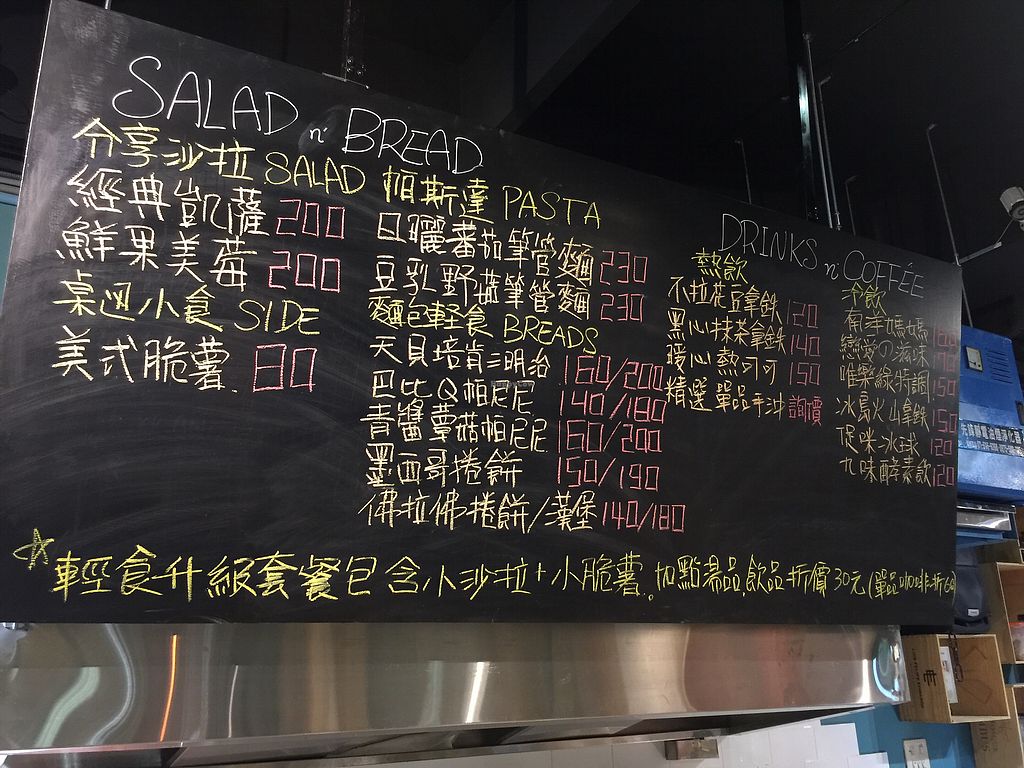 SALAD n' BREAD
分享沙拉 SALAD
經典凱薩 200
鮮果美莓 200
桌邊小食 SIDE
美式脆薯 80
帕斯達 PASTA
日曬蕃茄筆管麵 230
豆乳野蔬筆管麵 230
麵包輕食 BREADS
天貝培肯三明治 160/200
巴比Q帕尼尼 140/180
青醬蕈菇帕尼尼 160/200
墨西哥捲餅 150/190
佛拉佛捲餅/漢堡 140/180
DRINKS n COFFÉE
熱飲
不拉花豆拿鐵 120
黑心抹茶拿鐵 140
暖心熱可可 150
精選單品手沖 詢價
冷飲
有洋媽媽
戀愛の滋味
唯樂綠時調 150
冰島火山拿鐵 150
促咪冰球 120
九味酵素飲 120
☆輕食升級套餐包含小沙拉+小脆薯。加點湯品.飲品折價30元(單品咖啡折